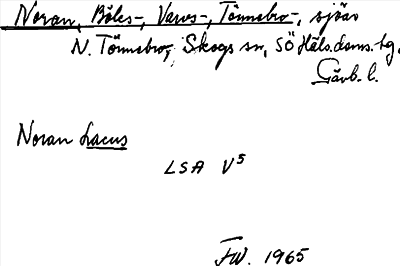 Noran, Böles-, Varos-, Tönnebro-, sjöar
N. Tönnebro, Skogs sn, SÖ Häls. doms. tg.
Gävb. l.
Noran Lacus
LSA V5
FW. 1965